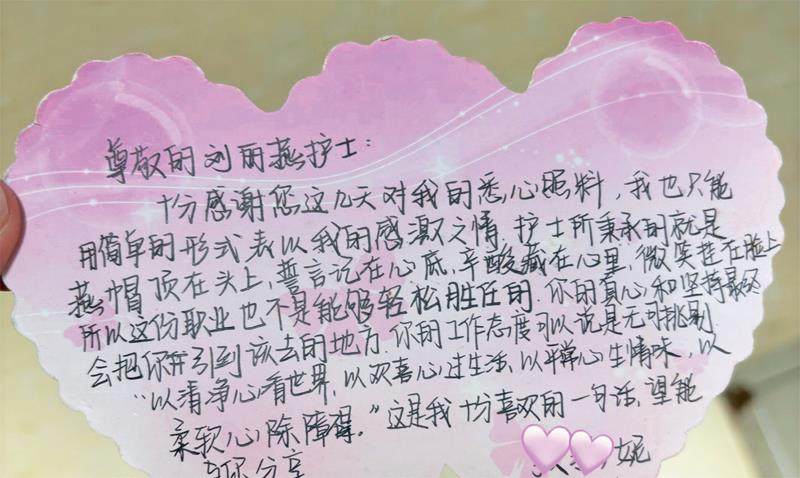 尊敬的刘丽燕护士：
十分感谢您这几天对我的悉心照料，我也只能
用简单的形式表以我的感激之情．护士所秉承的就是
燕帽顶在头上，誓言记在心底，辛酸藏在心里，微笑莲在脸上
所以这份职业也不是能够轻松胜任的．你的真心和坚持最终
会把你引到该去的地方．你的工作态度可以说是无可挑剔．
“以清净心看世界，以欢喜心过生活．以平常心生情味，以
柔软心除障碍。”这是我十分喜欢的一句话，望能
与你分享
妮